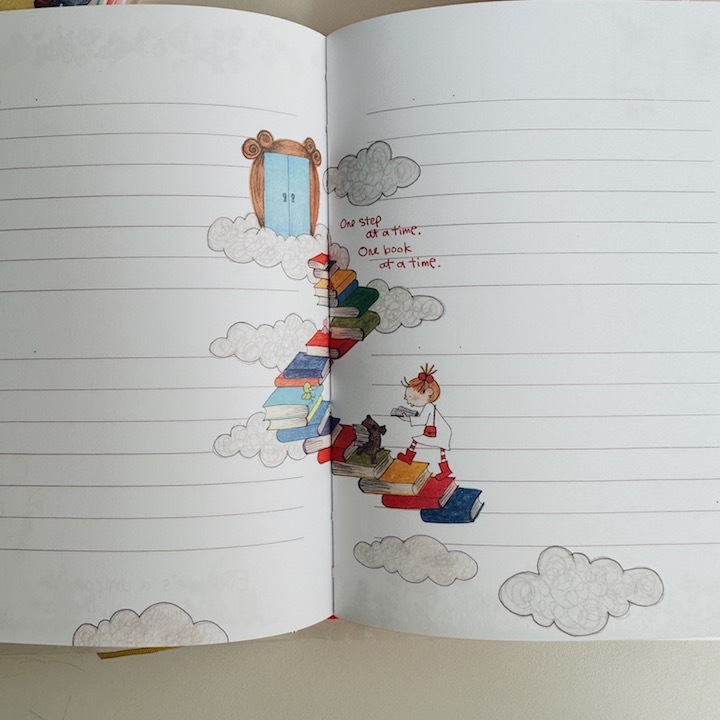 One step
at a time.
One book
at a time.